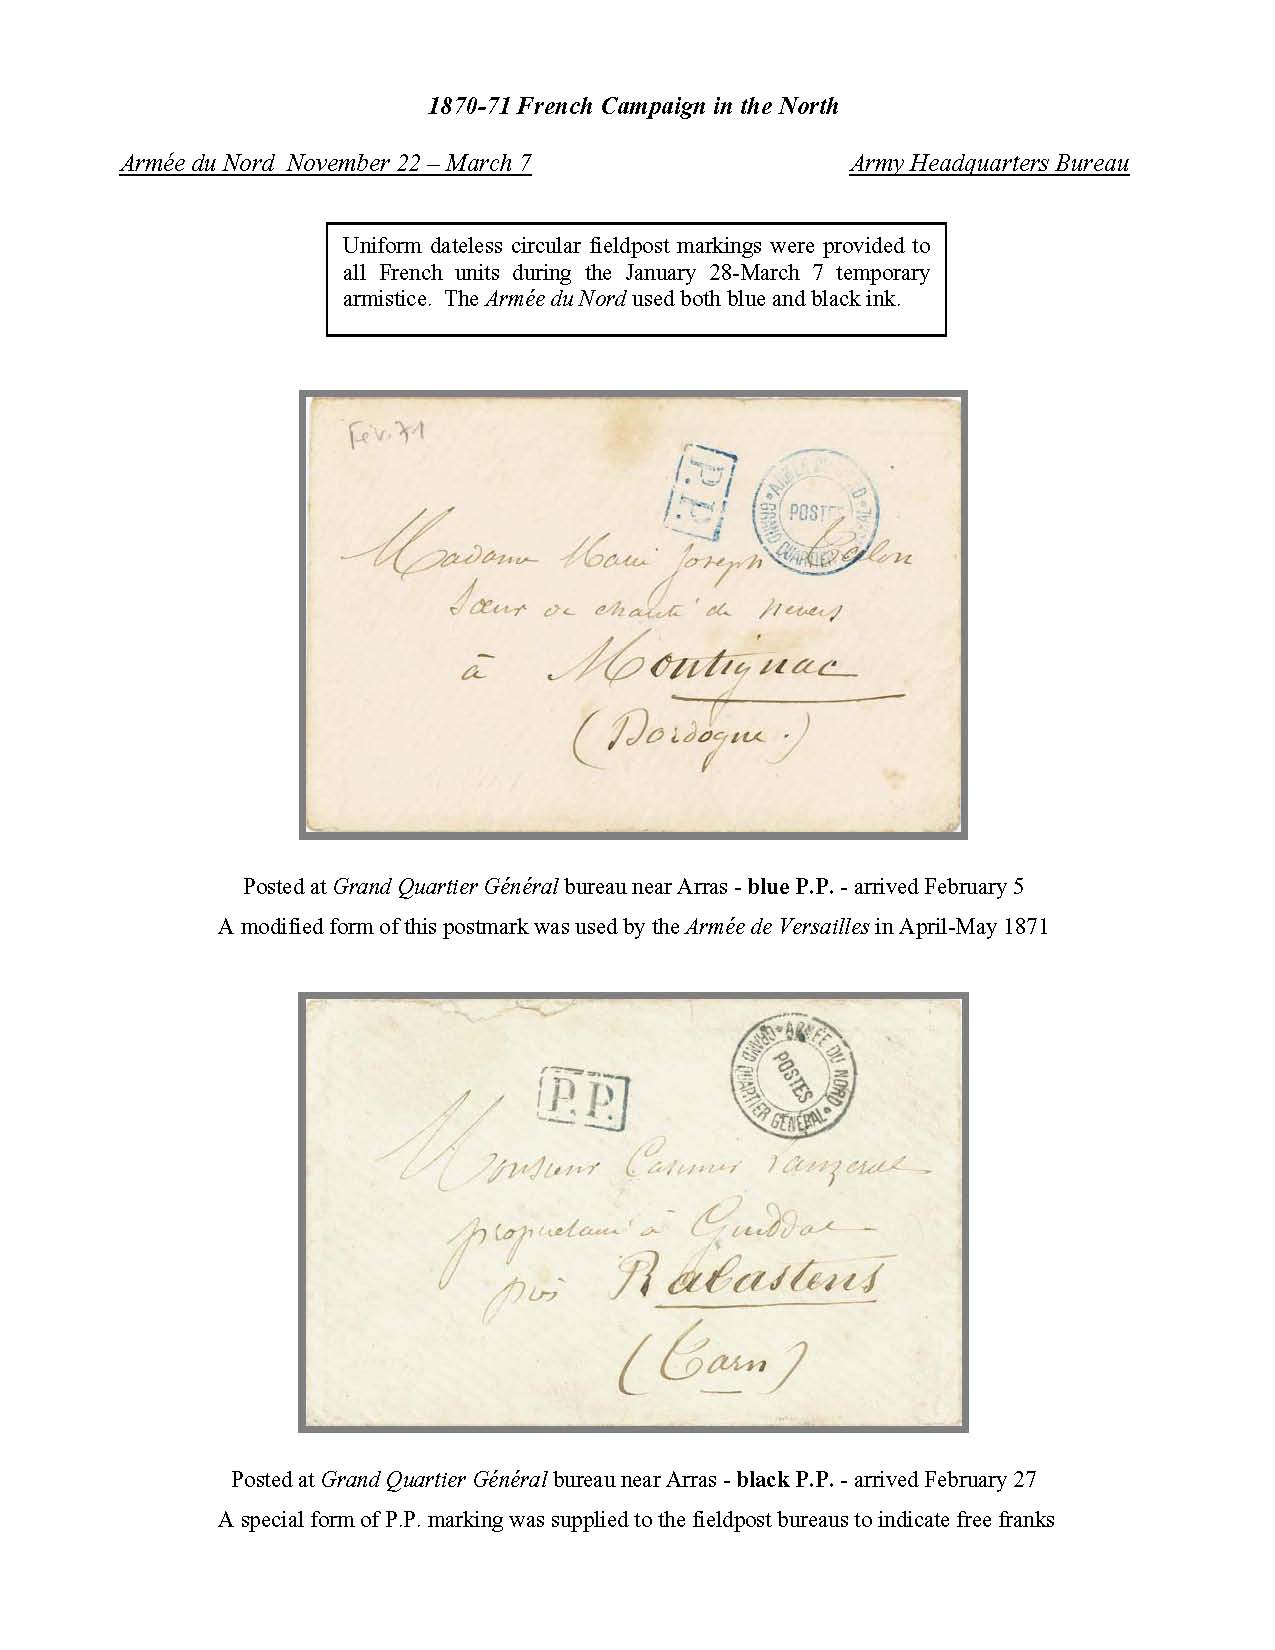 1870-71 French Campaign in the North
Armée du Nord November 22 – March 7
Army Headquarters Bureau
Uniform dateless circular fieldpost markings were provided to
all French units during the January 28-March 7 temporary
armistice. The Armée du Nord used both blue and black ink.
Fév. 71
P.P.
GRAND QUARTIER
POSTES
Madame Marie Joseph
Sœur de charité de Nevers
à Montignac
(Dordogne.)
Posted at Grand Quartier Général bureau near Arras - blue P.P. - arrived February 5
A modified form of this postmark was used by the Armée de Versailles in April-May 1871
P.P.
ARMÉE DU NORD
GRAND QUARTIER GÉNÉRAL
POSTES
Monsieur Casimir
propriétaire à
près Rabastens
(Tarn)
Posted at Grand Quartier Général bureau near Arras - black P.P. - arrived February 27
A special form of P.P. marking was supplied to the fieldpost bureaus to indicate free franks